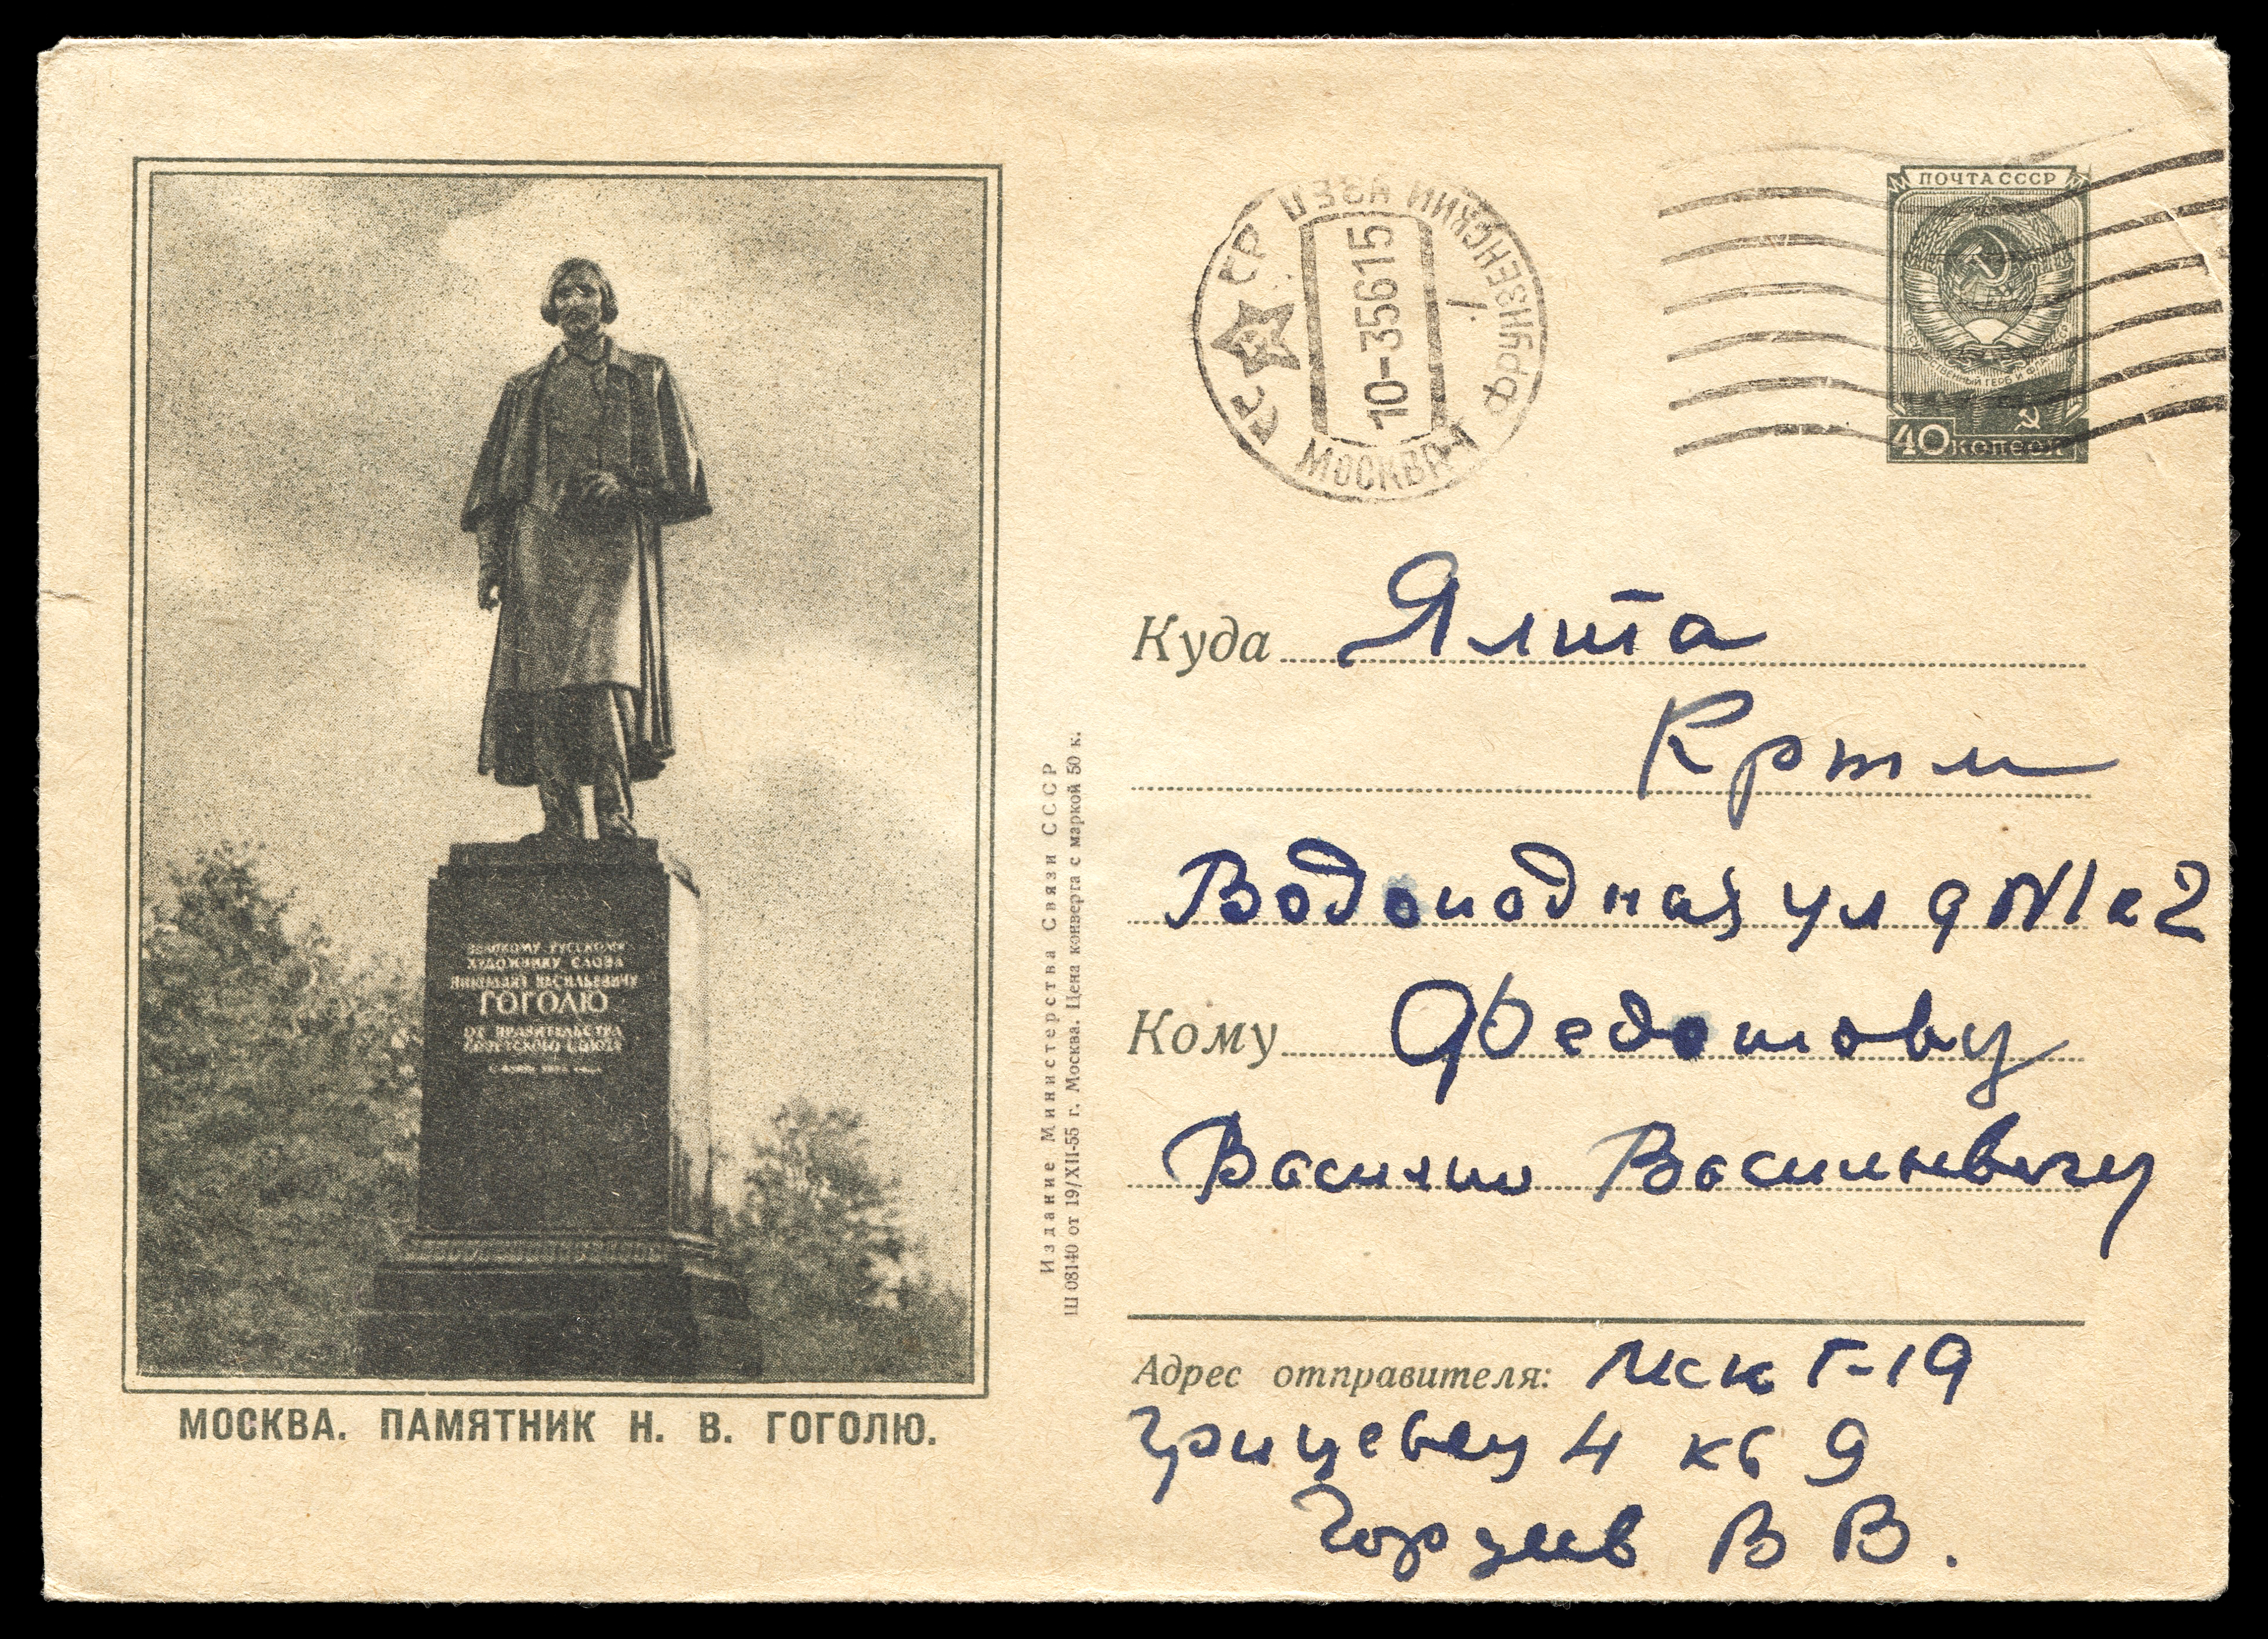 ПОЧТА СССР
40 КОПЕЕК
СССР
УЗЕЛ ФРУНЗЕНСКИЙ
10-35615
МОСКВА
Куда Ялта
Крым
Водопадная ул д N1 к 2
Кому Федотову
Василию Васильевичу
Адрес отправителя: Мск Г-19
Грицевец 4 кв 9
В В.
Издание Министерства Связи СССР
Ш 08140 от 19/XII-55 г. Москва. Цена конверта с маркой 50 к.
ВЕЛИКОМУ РУССКОМУ
ХУДОЖНИКУ СЛОВА
НИКОЛАЮ ВАСИЛЬЕВИЧУ
ГОГОЛЮ
ОТ ПРАВИТЕЛЬСТВА
СОВЕТСКОГО СОЮЗА
МОСКВА. ПАМЯТНИК Н. В. ГОГОЛЮ.